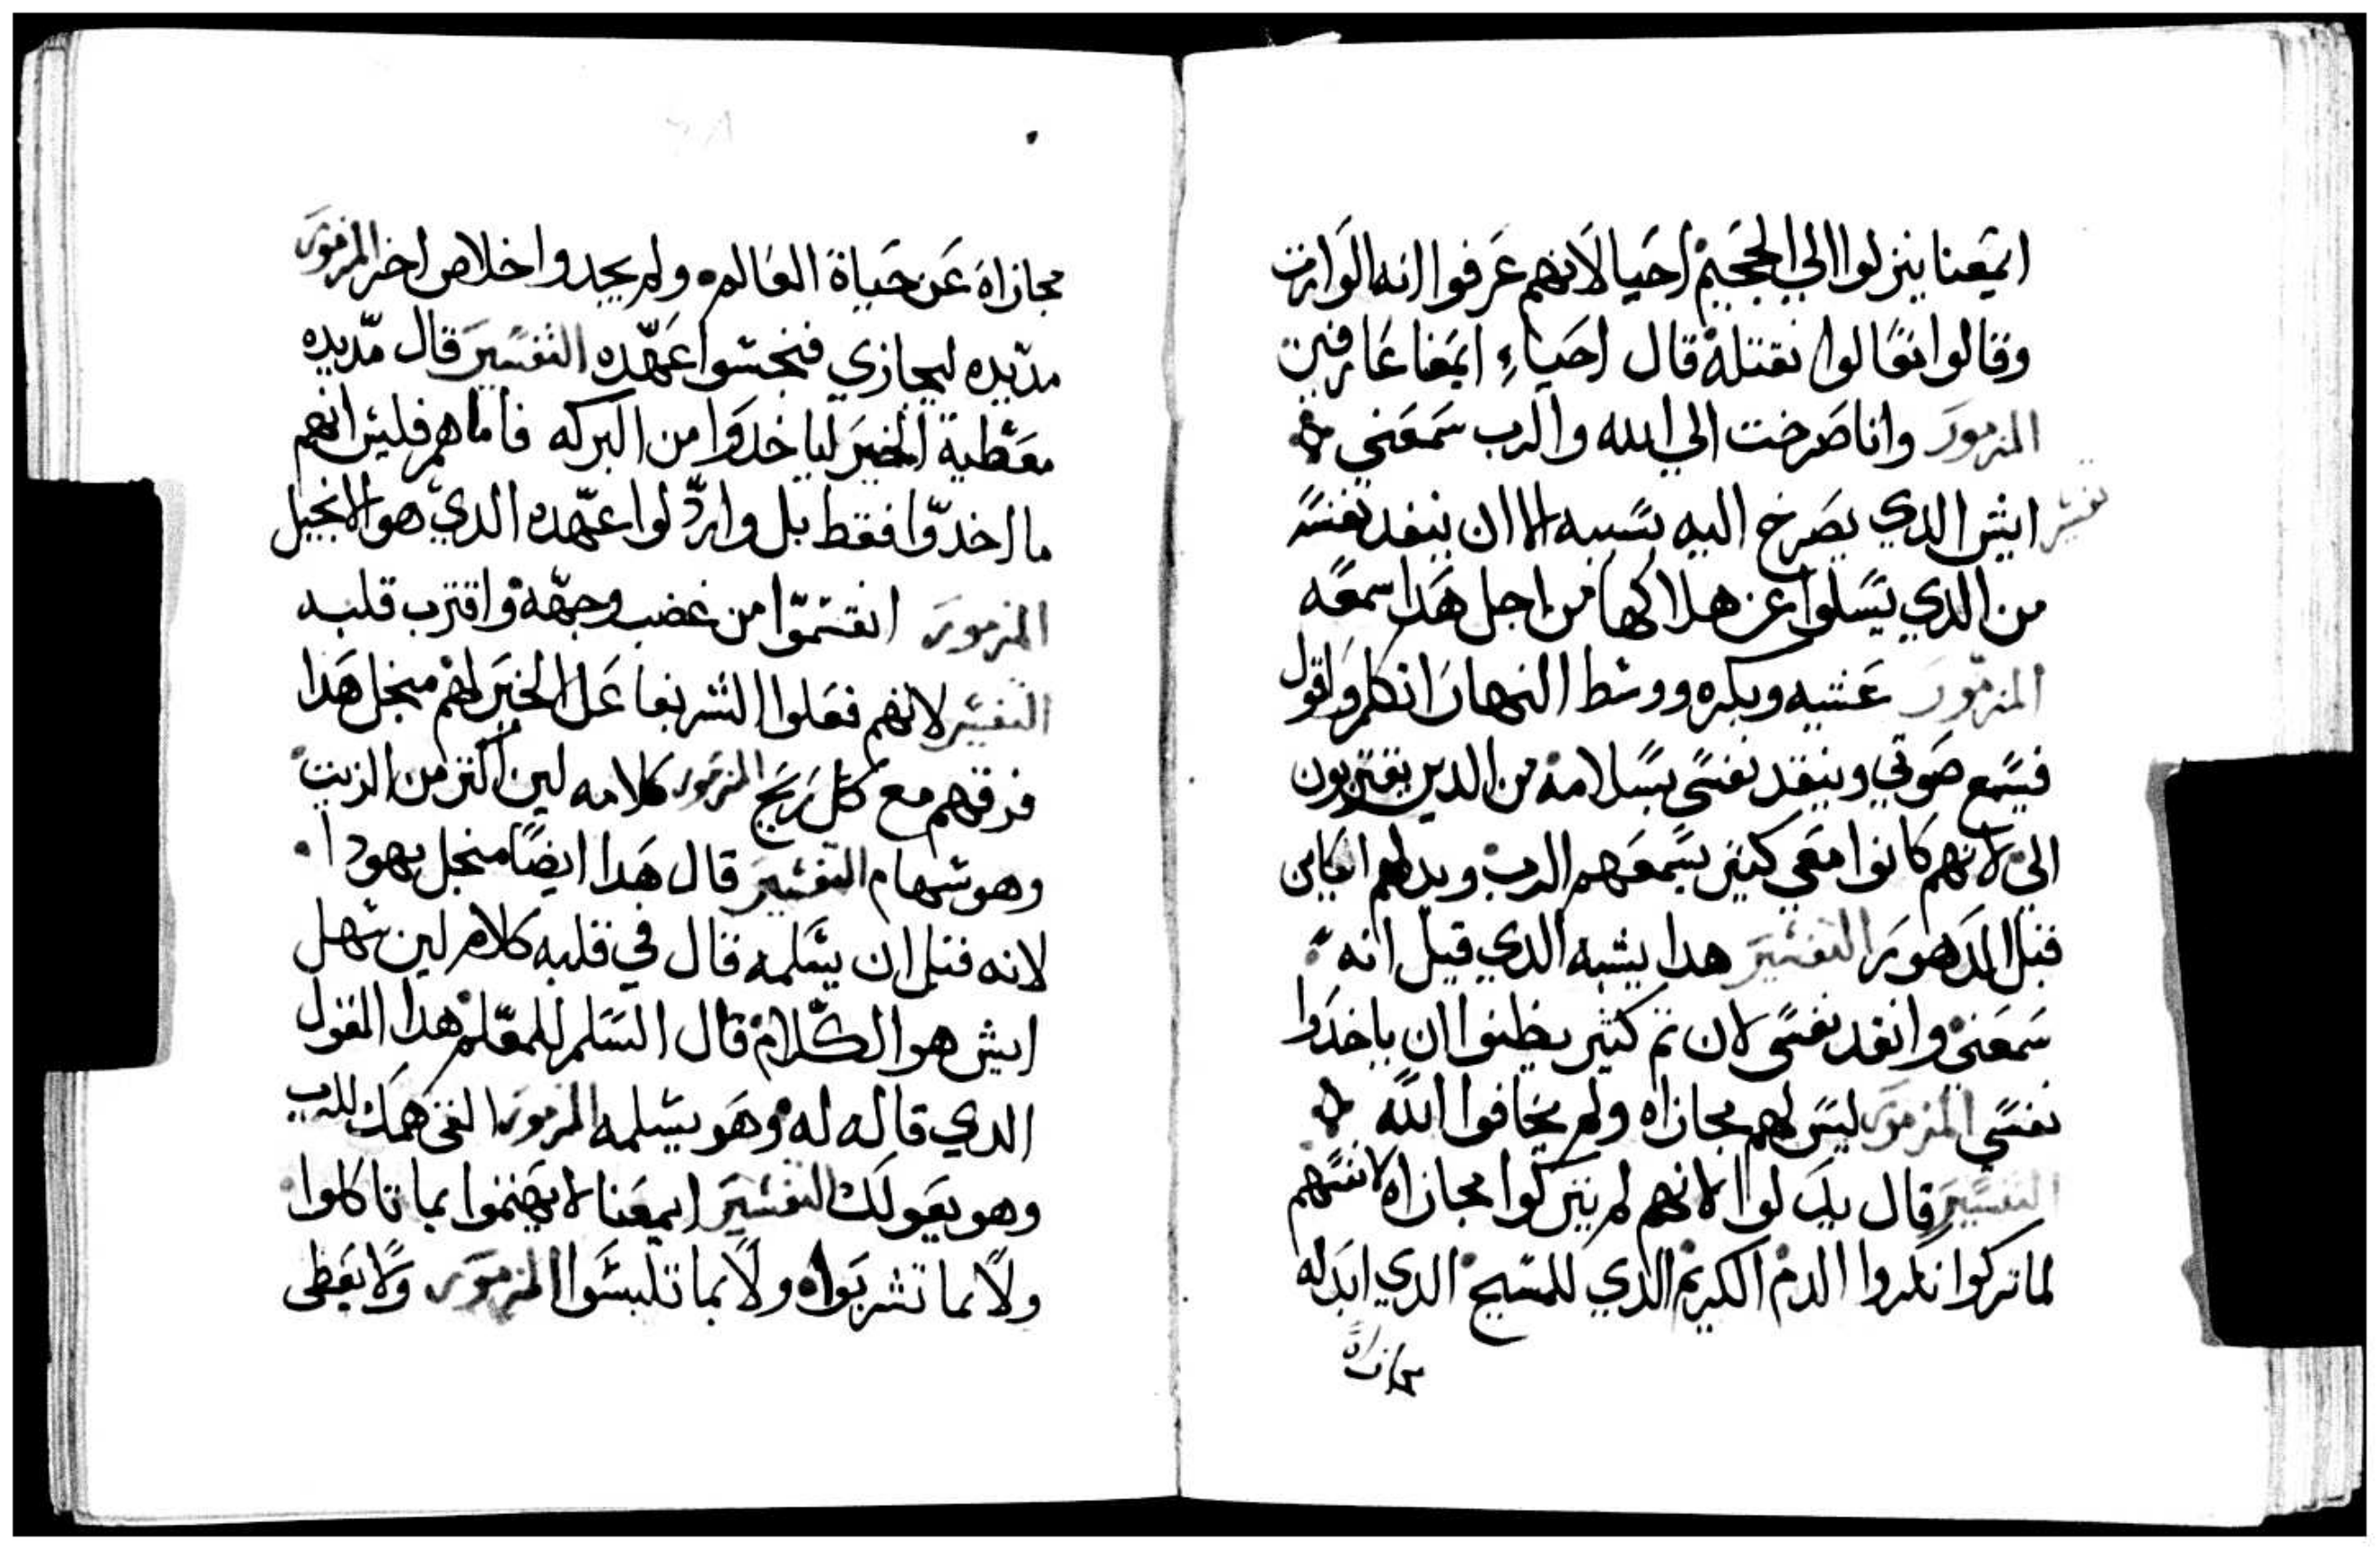 ايمعنا ينزلوا الي الجحيم احيا لانهم عرفوا انه الوارت
وقالوا تعالوا نقتله قال احياء ايمعنا عارفين
المزمور وانا صرخت الي الله والرب سمعني
تفسير ايش الدي يصرخ اليه بسببه الا ان ينفد نفسه
من الدي يسلوا عن هلاكها من اجل هدا سمعه
المزمور عشيه وبكره ووسط النهار اتكلم واقول
فيسمع صوتي وينقد نفسي بسلامه من الدين يقتربون
الي لانهم كانوا معي كتير يسمعهم الرب ويدلهم الكاين
قبل الدهور التفسير هدا يشبه الدي قيل انه
سمعني وانقد نفسي لان تم كتير يظنوا ان ياخدوا
نفسي المزمور ليس لهم مجازاه ولم يخافوا الله
التفسير قال بدلوا لانهم لم يتركوا مجازاه لانفسهم
لما تركوا نكروا الدم الكريم الدي للمسيح الدي ابدله
مجازاة
مجازاه عن حياة العالم ولم يجدوا خلاص اخر المزمور
مد يده ليجازي فنجسوا عهده التفسير قال مد يده
معطية الخير لياخدوا من البركه فاما هم فليس انهم
ما اخدوا فقط بل واردلوا عهده الدي هو الانجيل
المزمور انقسموا من غضب وجهه واقترب قلبه
التفسير لانهم فعلوا الشر بفاعل الخير لهم منجل هدا
فرقهم مع كل ريح المزمور كلامه لين اكتر من الزيت
وهو سهام التفسير قال هدا ايضا منجل يهودا
لانه قبل ان يسلمه قال في قلبه كلام لين سهل
ايش هو الكلام قال السلم للمعلم هدا القول
الدي قاله له وهو يسلمه المزمور القي همك للرب
وهو يعولك التفسير ايمعنا لا يهتموا بما تاكلوا
ولا بما تشربوا ولا بما تلبسوا المزمور ولا يعطي